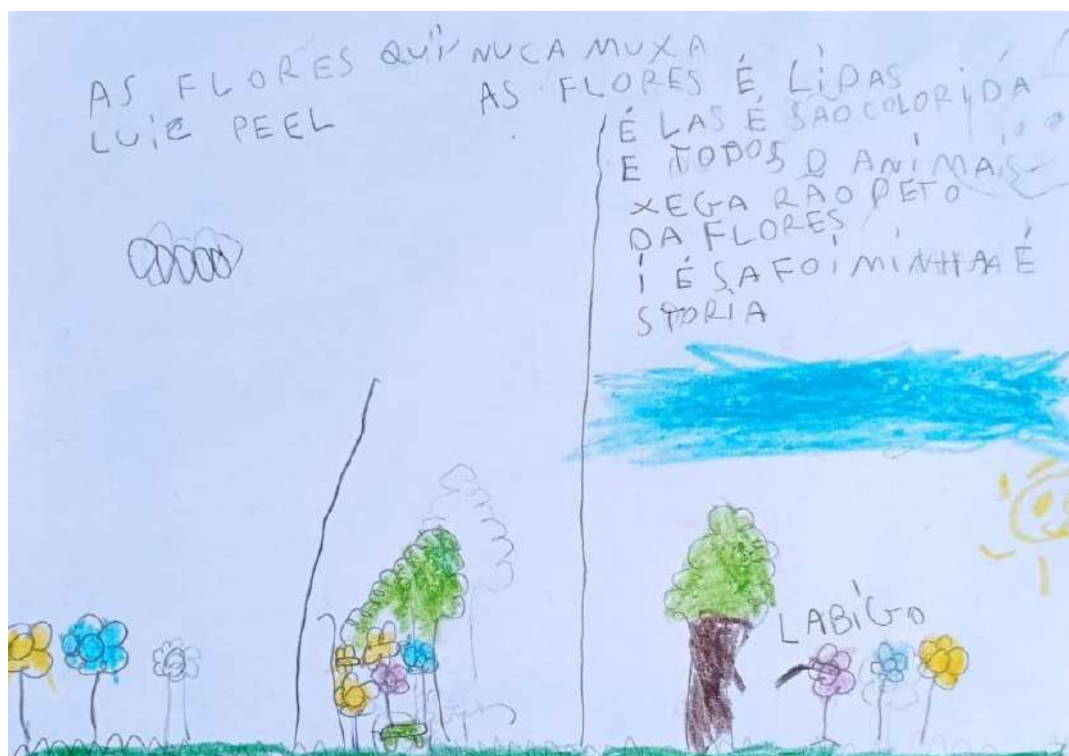 AS FLORES QUI NUCA MUXA
LUIZ PEEL
AS FLORES É LIDAS
É LAS É SÃO COLORIDA
E TODOS O ANIMAIS
XEGA RÃO PETO
DA FLORES
I É SA FOI MINHA É
STORIA
LABIGO